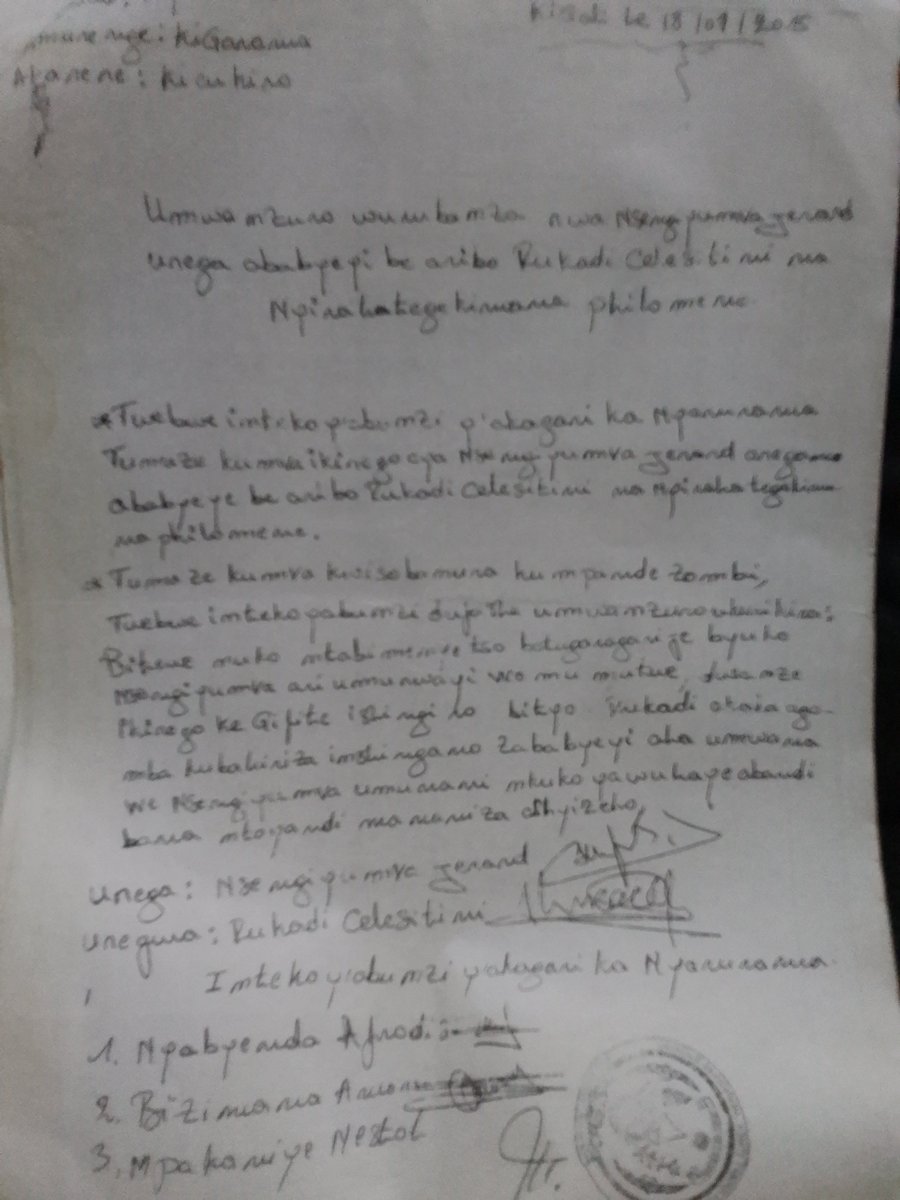 Kigali le 18/09/2015
Umurenge: KiGarama
Akarere: Kicukiro
Umwanzuro wurubanza rwa Nsengiyumva gerard
urega ababyeyi be aribo Rukadi Celesitini na
Nyirahategekimana philomene
* Twebwe inteko y'abunzi y'akagari ka Nyarurama
Tumaze kumva ikirego cya Nsengiyumva gerard aregamo
ababyeye be aribo Rukadi Celesitini na Nyirahategekima
na philomene.
* Tumaze kumva kwisobanura ku mpande zombi,
Twebwe inteko yabunzi dufashe umwanzuro ukurikira:
Bitewe nuko ntabimenyetso batugaragarije byuko
Nsengiyumva ari umurwayi wo mu mutwe,
Ikirego ke Gifite ishingiro bityo Rukadi akaba ago-
mba kubahiriza inshingano zababyeyi aha umwana
we Nsengiyumva umunani nkuko yawuhaye abandi
bana ntayandi mananiza ashyizeho,
Urega: Nsengiyumva gerard
Uregwa: Rukadi Celesitini
Inteko y'abunzi y'akagari ka Nyarurama
1. Nyabyenda Afrodi
2. Bizimana
3. Mpakaniye Nestol